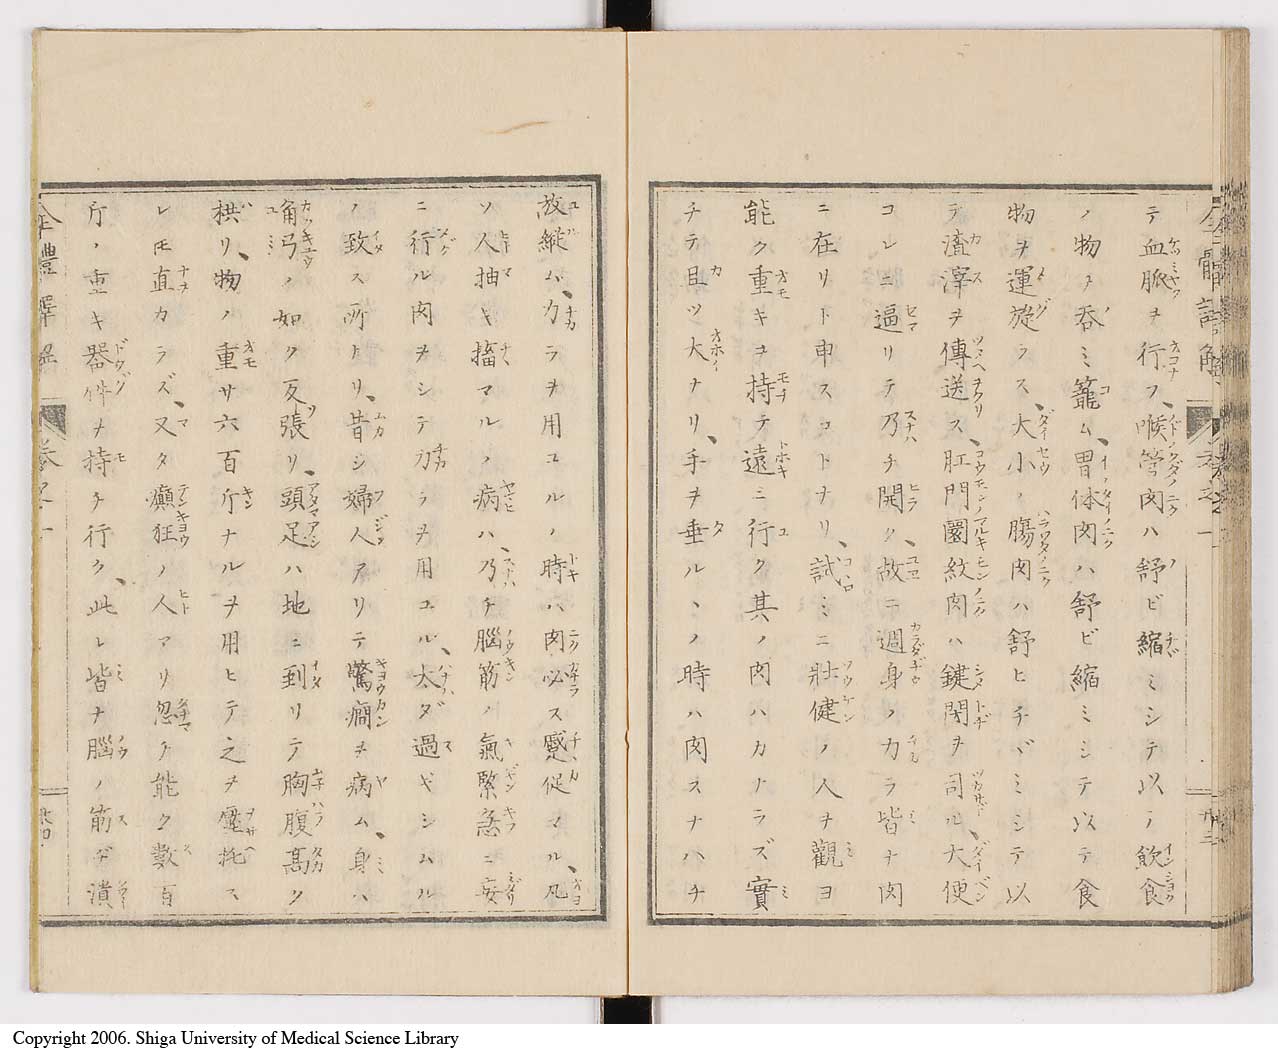 テ血脈ヲ行フ、喉管肉ハ舒ビ縮ミシテ以テ飲食
ノ物ヲ呑ミ籠ム、胃体肉ハ舒ビ縮ミシテ以テ食
物ヲ運旋ラス、大小ノ腸肉ハ舒ヒチヾミシテ以
テ渣滓ヲ傳送ス、肛門圏紋肉ハ鍵閉ヲ司ル、大便
コレニ逼リテ乃チ開ク、故ニ週身ノ力ラ皆ナ肉
ニ在リト申スコトナリ、試ミニ壯健ノ人ヲ觀ヨ
能ク重キヲ持テ遠ミ行ク其ノ肉ハカナラズ實
チテ且ツ大ナリ、手ヲ垂ルヽノ時ハ肉スナハチ
放縱ム、力ラヲ用ユルノ時ハ肉必ス蹙促マル、凡
ソ人抽キ搐マルノ病ハ、乃チ腦筋ノ氣緊急ニ妄
ニ行ル肉ヲシテ力ラヲ用ユル、太ダ過ギシムル
ノ致ス所トリ、昔シ婦人アリテ驚癇ヲ病ム、身ハ
角弓ノ如ク反張リ、頭足ハ地ニ到リテ胸腹髙ク
拱リ、物ノ重サ六百斤ナルヲ用ヒテ之ヲ壓托ス
レ𪜈直カラズ、又タ癲狂ノ人アリ忽チ能ク數百
斤ノ重キ器件ナ持チ行ク、此レ皆ナ腦ノ筋ヂ潰
全體譯解
卷之一
Copyright 2006. Shiga University of Medical Science Library